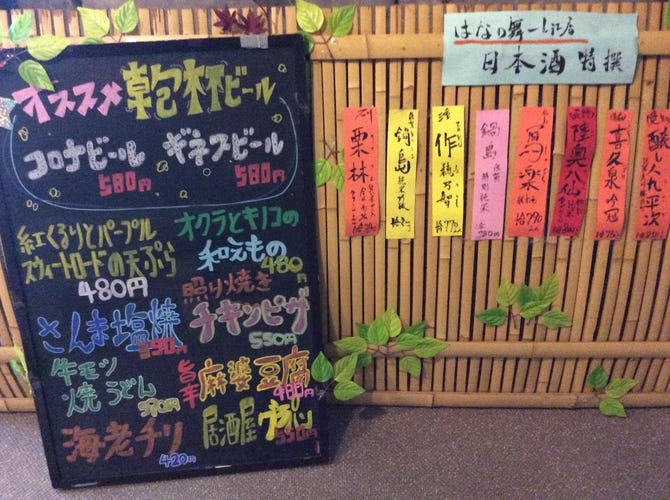 オススメ乾杯ビール
コロナビール
580円
ギネスビール
580円
紅くるりとパープル
スウィートロードの天ぷら
480円
オクラとキノコの
和えもの
480円
さんま塩焼
390円
照り焼き
チキンピザ
550円
牛モツ
焼うどん
旨辛麻婆豆腐
480円
海老チリ
420円
居酒屋
550円
はなの舞
日本酒 特撰
栗林
鍋島
作
穂乃智
¥770
鍋島
特別純米
陸奥八仙
喜久泉 吟冠
醸し人九平次